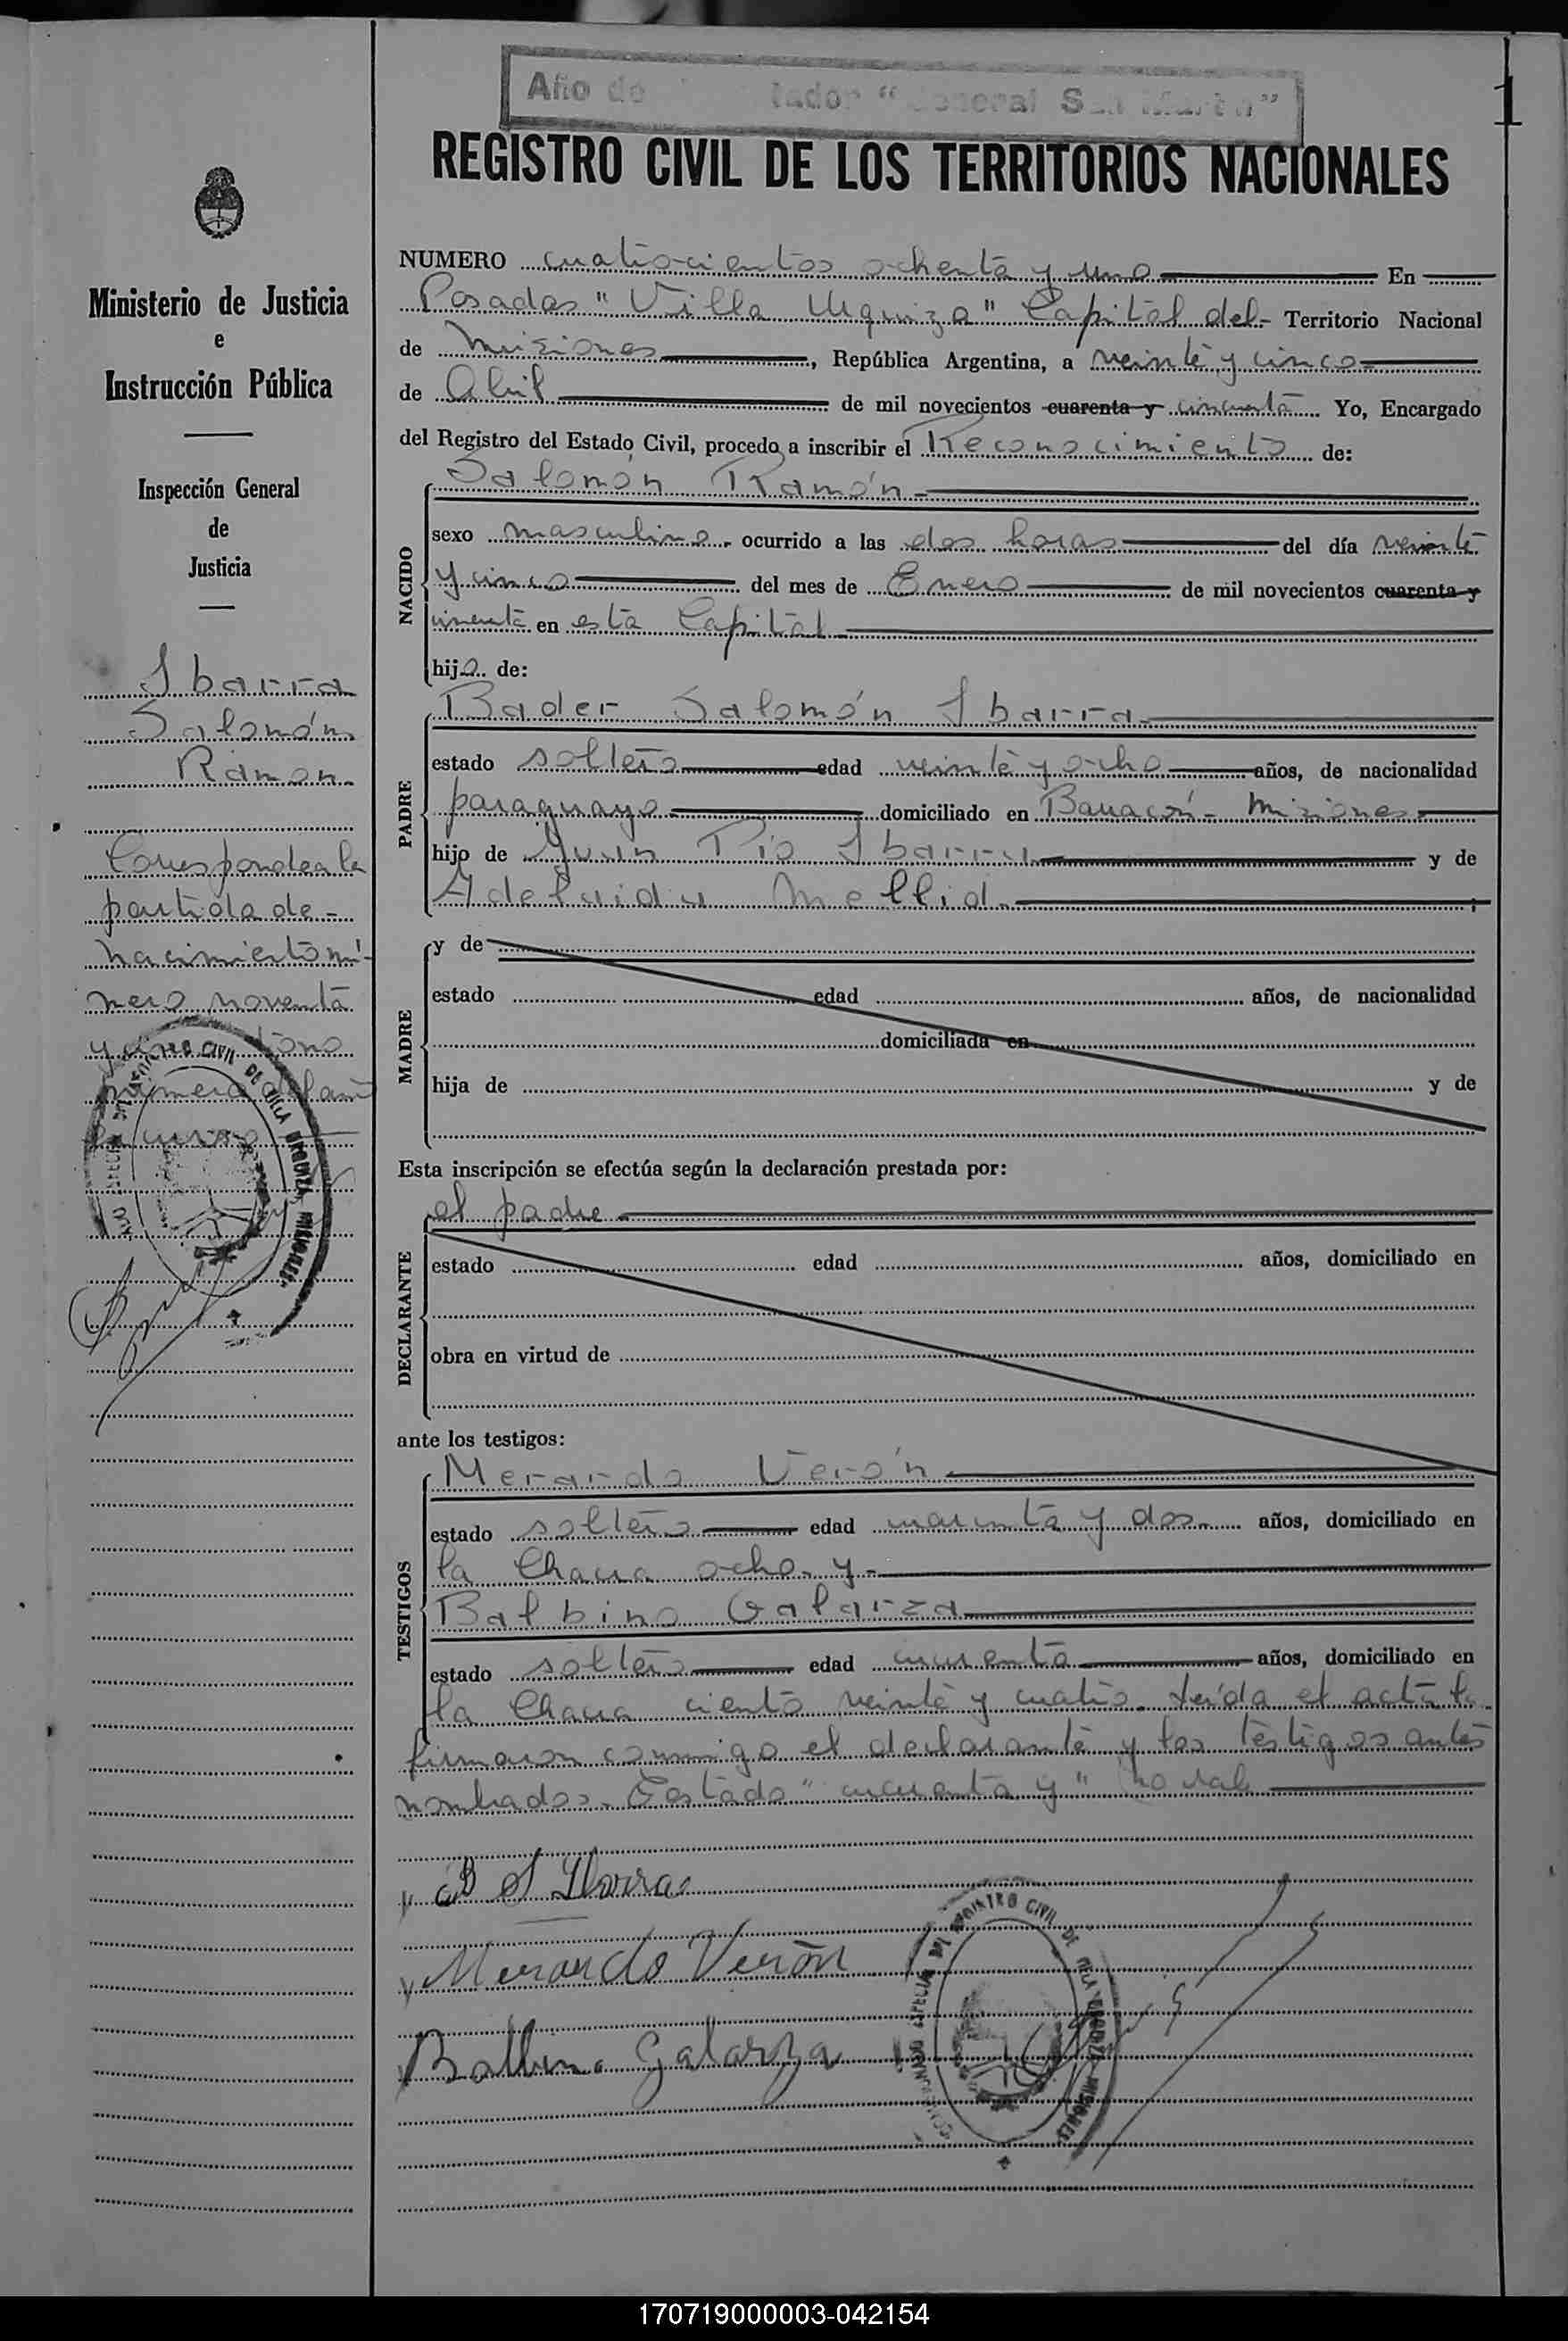 Año de tador "General San Martin"
1
REGISTRO CIVIL DE LOS TERRITORIOS NACIONALES
Ministerio de Justicia
e
Instrucción Pública
Inspección General
de
Justicia
Ibarra
Salomón
Ramon.
Corresponde a la
partida de
nacimiento nú-
mero noventa
y tomo
primero del año
en curso
NUMERO cuatrocientos ochenta y uno En
Posadas "Villa Urquiza" Capital del- Territorio Nacional
de Misiones, República Argentina, a veinte y cinco
de Abril de mil novecientos cuarenta y cincuenta. Yo, Encargado
del Registro del Estado Civil, procedo a inscribir el Reconocimiento de:
Salomón Ramón-
NACIDO
sexo masculino. ocurrido a las dos horas del día veinte
y cinco del mes de Enero de mil novecientos cuarenta y
cincuenta en esta Capital
hijo de:
PADRE
Bader Salomón Ibarra
estado soltero edad veinte y ocho años, de nacionalidad
paraguayo domiciliado en Barracón- Misiones
hijo de Juan Pío Ibarra y de
Adelaida Mellid
MADRE
y de
estado edad años, de nacionalidad
domiciliada en
hija de y de
Esta inscripción se efectúa según la declaración prestada por:
el padre
DECLARANTE
estado edad años, domiciliado en
obra en virtud de
ante los testigos:
TESTIGOS
Merardo Verón
estado soltero edad cuarenta y dos años, domiciliado en
la Chacra ocho. y-
Balbino Galarza
estado soltero edad cuarenta años, domiciliado en
la Chacra ciento veinte y cuatro. Leída el acta la
firmaron conmigo el declarante y los testigos antes
nombrados. Testado "cuarenta y" no vale
B S Ibarra
Merardo Verón
Balbino Galarza
REGISTRO CIVIL DE VILLA URQUIZA MISIONES.
DEL REGISTRO CIVIL DE VILLA URQUIZA MISIONES.
170719000003-042154